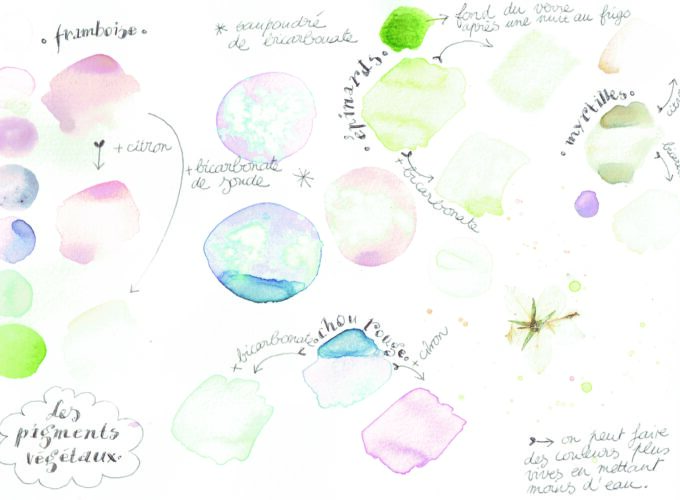 framboise
+ citron
+ bicarbonate
de soude
* saupoudré
de bicarbonate
fond du verre
après une nuit au frigo
épinards
+ bicarbonate
myrtilles
chou rouge
+ bicarbonate
+ citron
les
pigments
végétaux.
on peut faire
des couleurs plus
vives en mettant
moins d'eau.